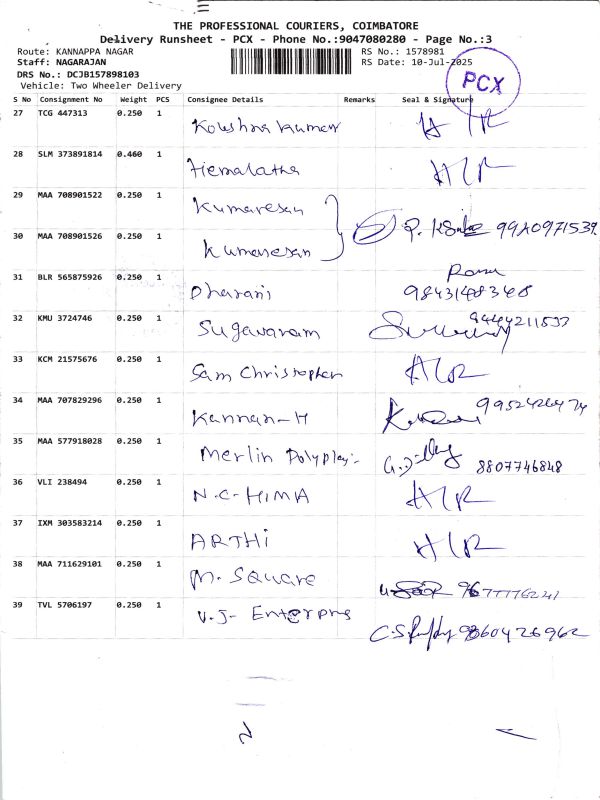 THE PROFESSIONAL COURIERS, COIMBATORE
Delivery Runsheet - PCX - Phone No.:9047080280 - Page No.:3
Route: KANNAPPA NAGAR RS No.: 1578981
Staff: NAGARAJAN RS Date: 10-Jul-2025
DRS No.: DCJB157898103
Vehicle: Two Wheeler Delivery
PCX
S No Consignment No Weight PCS Consignee Details Remarks Seal & Signature
27 TCG 447313 0.250 1 Koushna kumar
28 SLM 373891814 0.460 1 Hemalatha
29 MAA 708901522 0.250 1 Kumaresan
30 MAA 708901526 0.250 1 Kumaresan
31 BLR 565875926 0.250 1 Dharani
32 KMU 3724746 0.250 1 Sugavaram
33 KCM 21575676 0.250 1 Sam Christopher
34 MAA 707829296 0.250 1 Kannan-H
35 MAA 577918028 0.250 1 Merlin 8807746848
36 VLI 238494 0.250 1 N.C-HIMA
37 IXM 303583214 0.250 1 ARTHI
38 MAA 711629101 0.250 1 M. Square
39 TVL 5706197 0.250 1 V.J- 9860426962